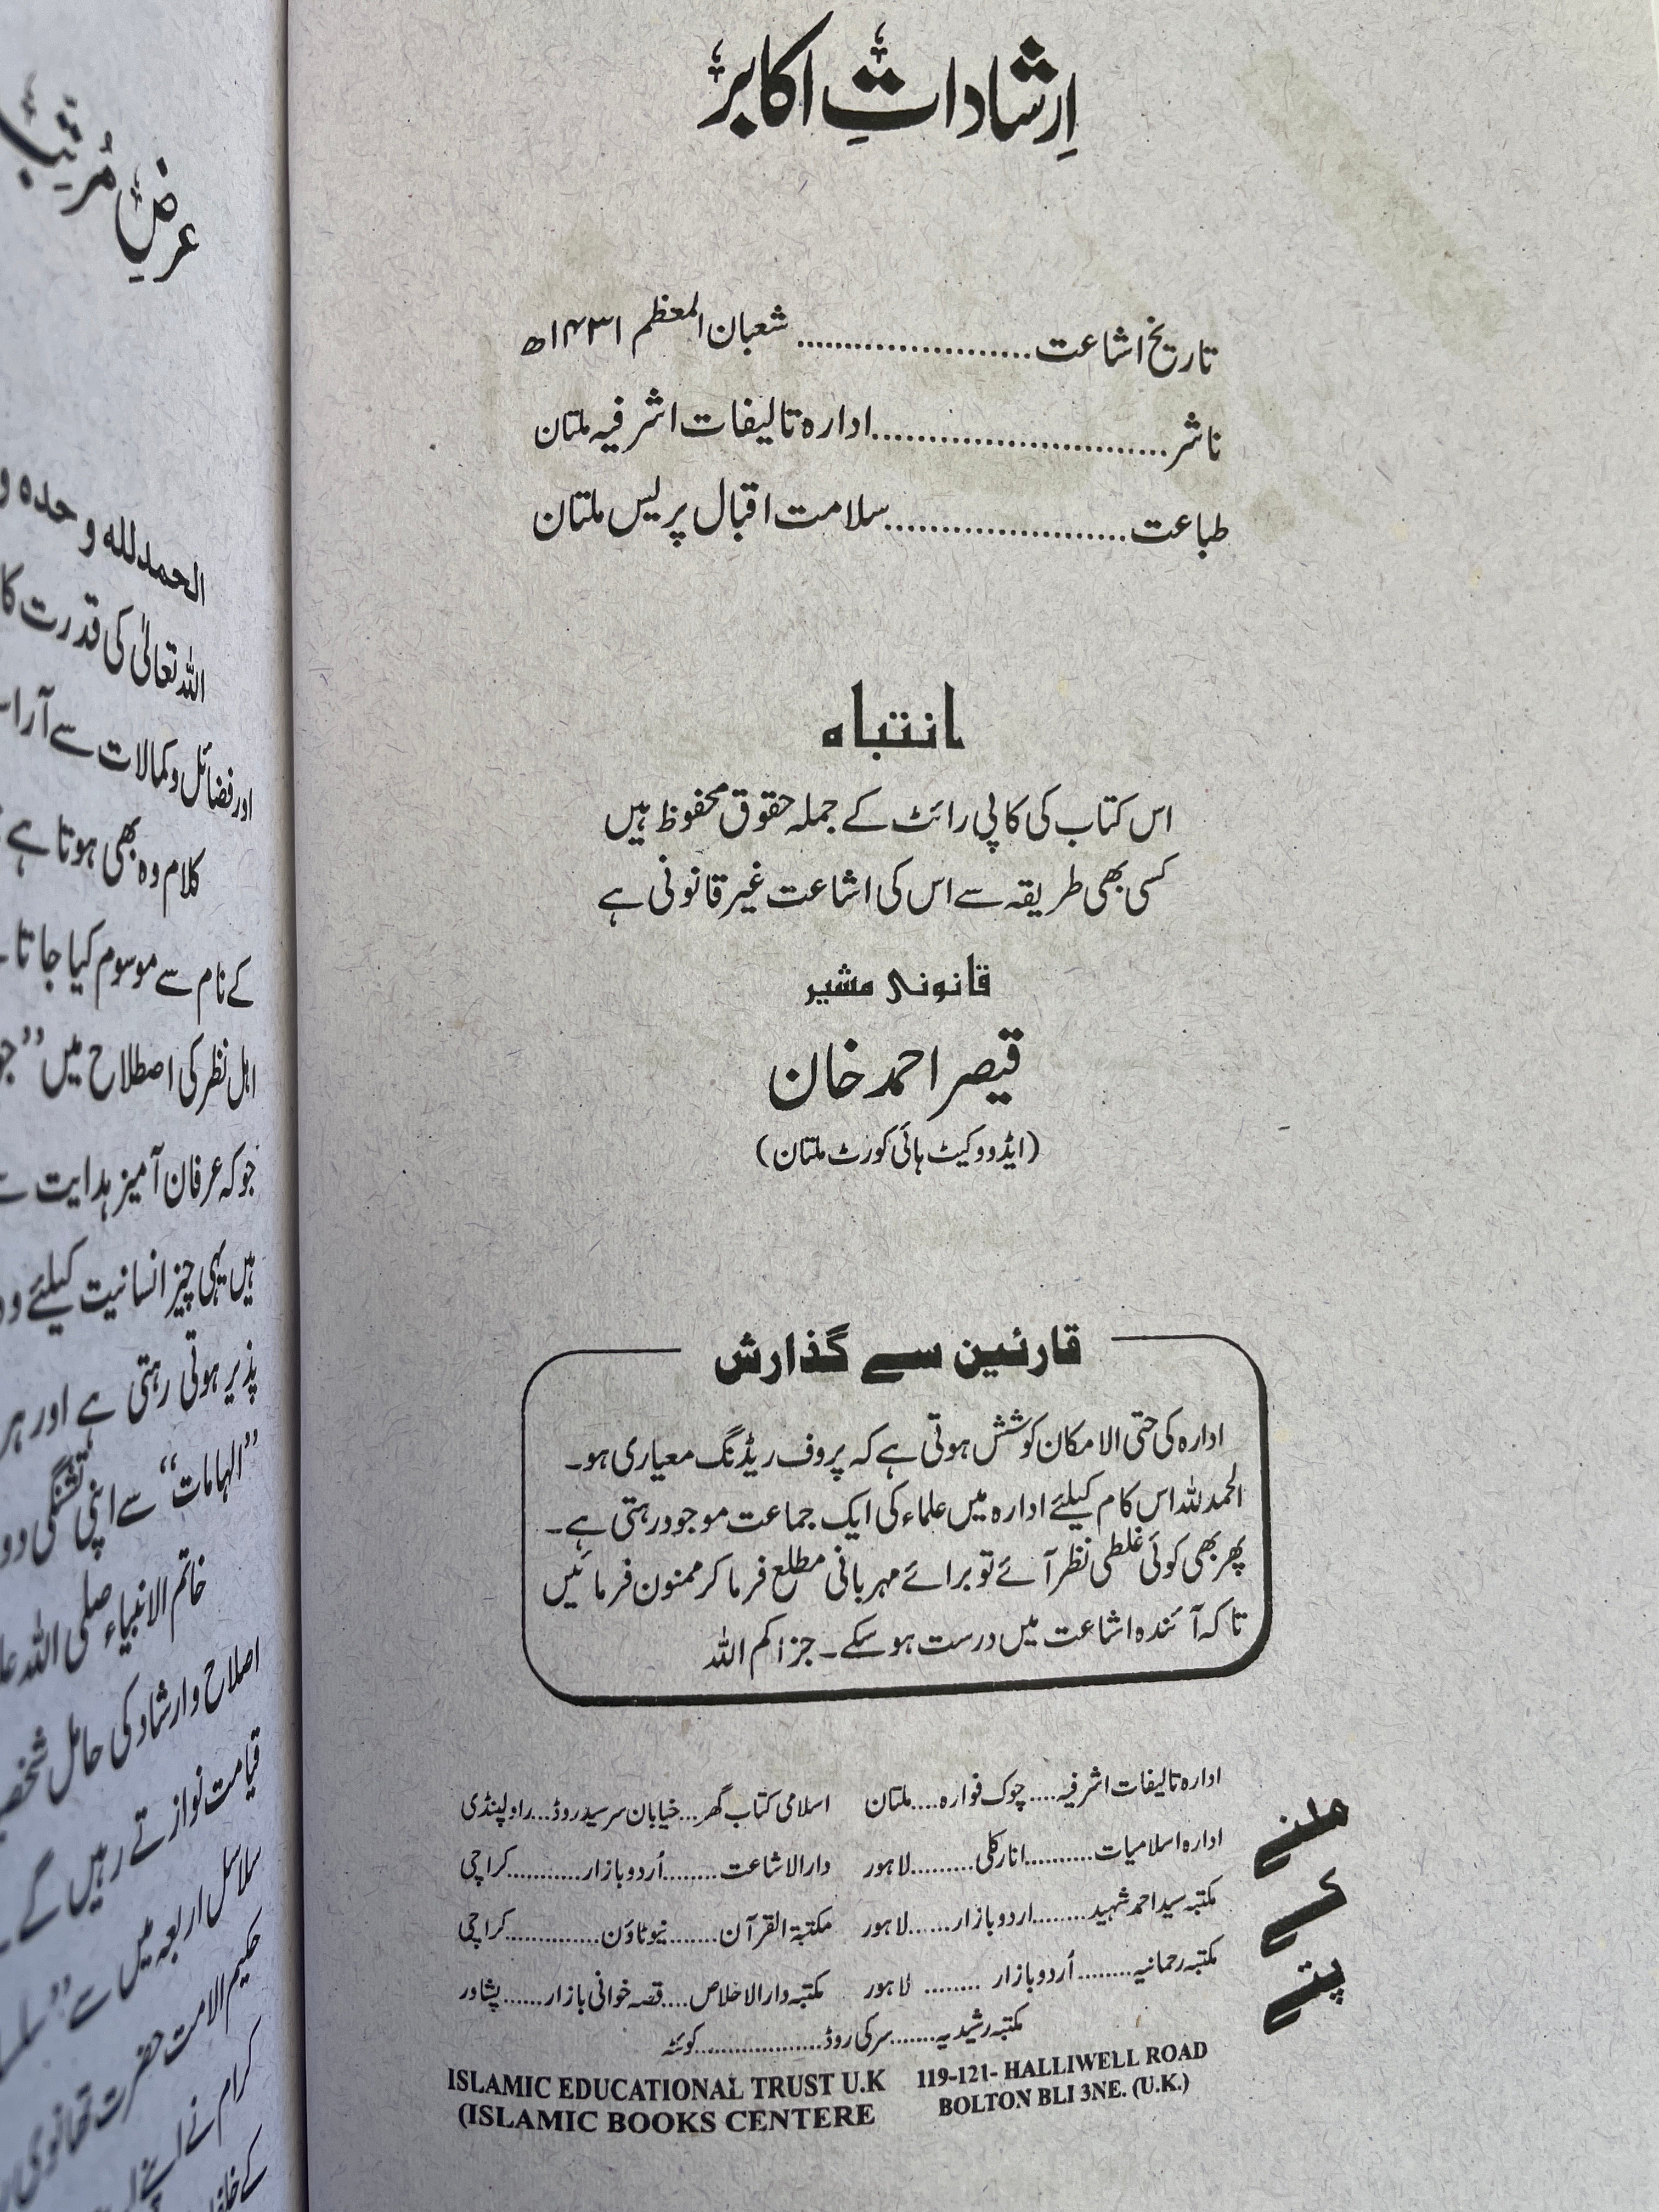 اِرشاداتِ اکابر
تاریخ اشاعت......................شعبان المعظم ۱۴۳۱ھ
ناشر............................ادارہ تالیفات اشرفیہ ملتان
طباعت......................سلامت اقبال پریس ملتان
انتباہ
اس کتاب کی کاپی رائٹ کے جملہ حقوق محفوظ ہیں
کسی بھی طریقہ سے اس کی اشاعت غیر قانونی ہے
قانونی مشیر
قیصر احمد خان
(ایڈووکیٹ ہائی کورٹ ملتان)
قارئین سے گذارش
ادارہ کی حتی الامکان کوشش ہوتی ہے کہ پروف ریڈنگ معیاری ہو۔
الحمد للہ اس کام کیلئے ادارہ میں علماء کی ایک جماعت موجود رہتی ہے۔
پھر بھی کوئی غلطی نظر آئے تو برائے مہربانی مطلع فرما کر ممنون فرمائیں
تاکہ آئندہ اشاعت میں درست ہو سکے۔ جزاکم اللہ
ملنے کے پتے
ادارہ تالیفات اشرفیہ....چوک فوارہ....ملتان اسلامی کتاب گھر...خیابان سرسید روڈ...راولپنڈی
ادارہ اسلامیات..........انارکلی.........لاہور دارالاشاعت........اُردو بازار...........کراچی
مکتبہ سید احمد شہید........اردو بازار......لاہور مکتبۃ القرآن.......نیو ٹاؤن.............کراچی
مکتبہ رحمانیہ........اُردو بازار ........ لاہور مکتبہ دارالاخلاص....قصہ خوانی بازار......پشاور
مکتبہ رشیدیہ.......سرکی روڈ...................کوئٹہ
ISLAMIC EDUCATIONAL TRUST U.K 119-121- HALLIWELL ROAD
(ISLAMIC BOOKS CENTERE BOLTON BLI 3NE. (U.K.)
عرضِ مُرتِّب
الحمدللہ وحدہ و
اللہ تعالیٰ کی قدرت کا
اور فضائل و کمالات سے آرا
کلام وہ بھی ہوتا ہے
کے نام سے موسوم کیا جاتا
اہل نظر کی اصطلاح میں ’’جو
جو کہ عرفان آمیز ہدایت
ہیں یہی چیز انسانیت کیلئے
پذیر ہوتی رہتی ہے اور ہر
’’الہامات‘‘ سے اپنی تشنگی دو
خاتم الانبیاء صلی اللہ
اصلاح و ارشاد کی حامل
قیامت نوازتے رہیں گے
سلاسل اربعہ میں سے
حکیم الامت حضرت تھانوی
کرام نے اپنے
کے